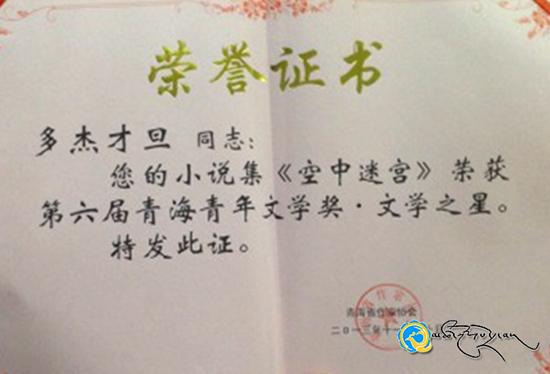 荣誉证书
多杰才旦 同志:
您的小说集《空中迷宫》荣获
第六届青海青年文学奖·文学之星。
特发此证。
青海省作家协会
二〇一三年十一